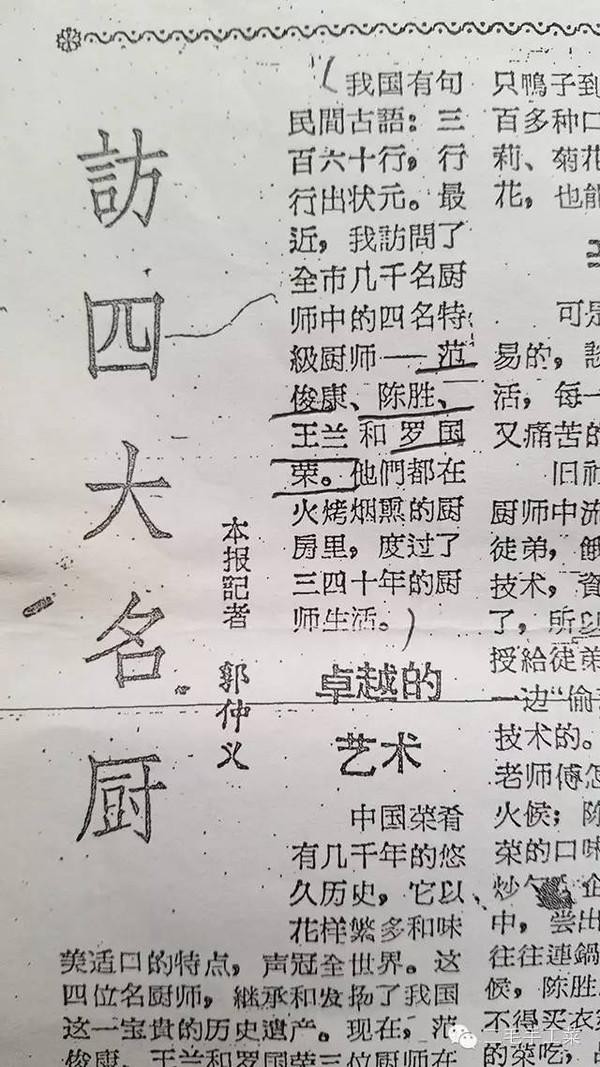 訪四大名厨
本报記者 郭仲义
我国有句
民間古語：三
百六十行，行
行出状元。最
近，我訪問了
全市几千名厨
师中的四名特
級厨师——范
俊康、陈胜、
王兰和罗国
荣。他們都在
火烤烟熏的厨
房里，度过了
三四十年的厨
师生活。
卓越的
艺术
中国菜肴
有几千年的悠
久历史，它以
花样繁多和味
美适口的特点，声冠全世界。这
四位名厨师，継承和发扬了我国
这一宝貴的历史遺产。现在，范
俊康、王兰和罗国荣三位厨师在
只鴨子到
百多种口
莉、菊花
花，也能
可是
易的，談
活，每一
又痛苦的
旧社
厨师中流
徒弟，餓
技术，資
了，所以
授給徒弟
一边“偷
技术的。
老师傅怎
火候；陈
菜的口味
炒
中，尝出
往往連鍋
候，陈胜
不得买衣
的菜吃，
毛手工菜